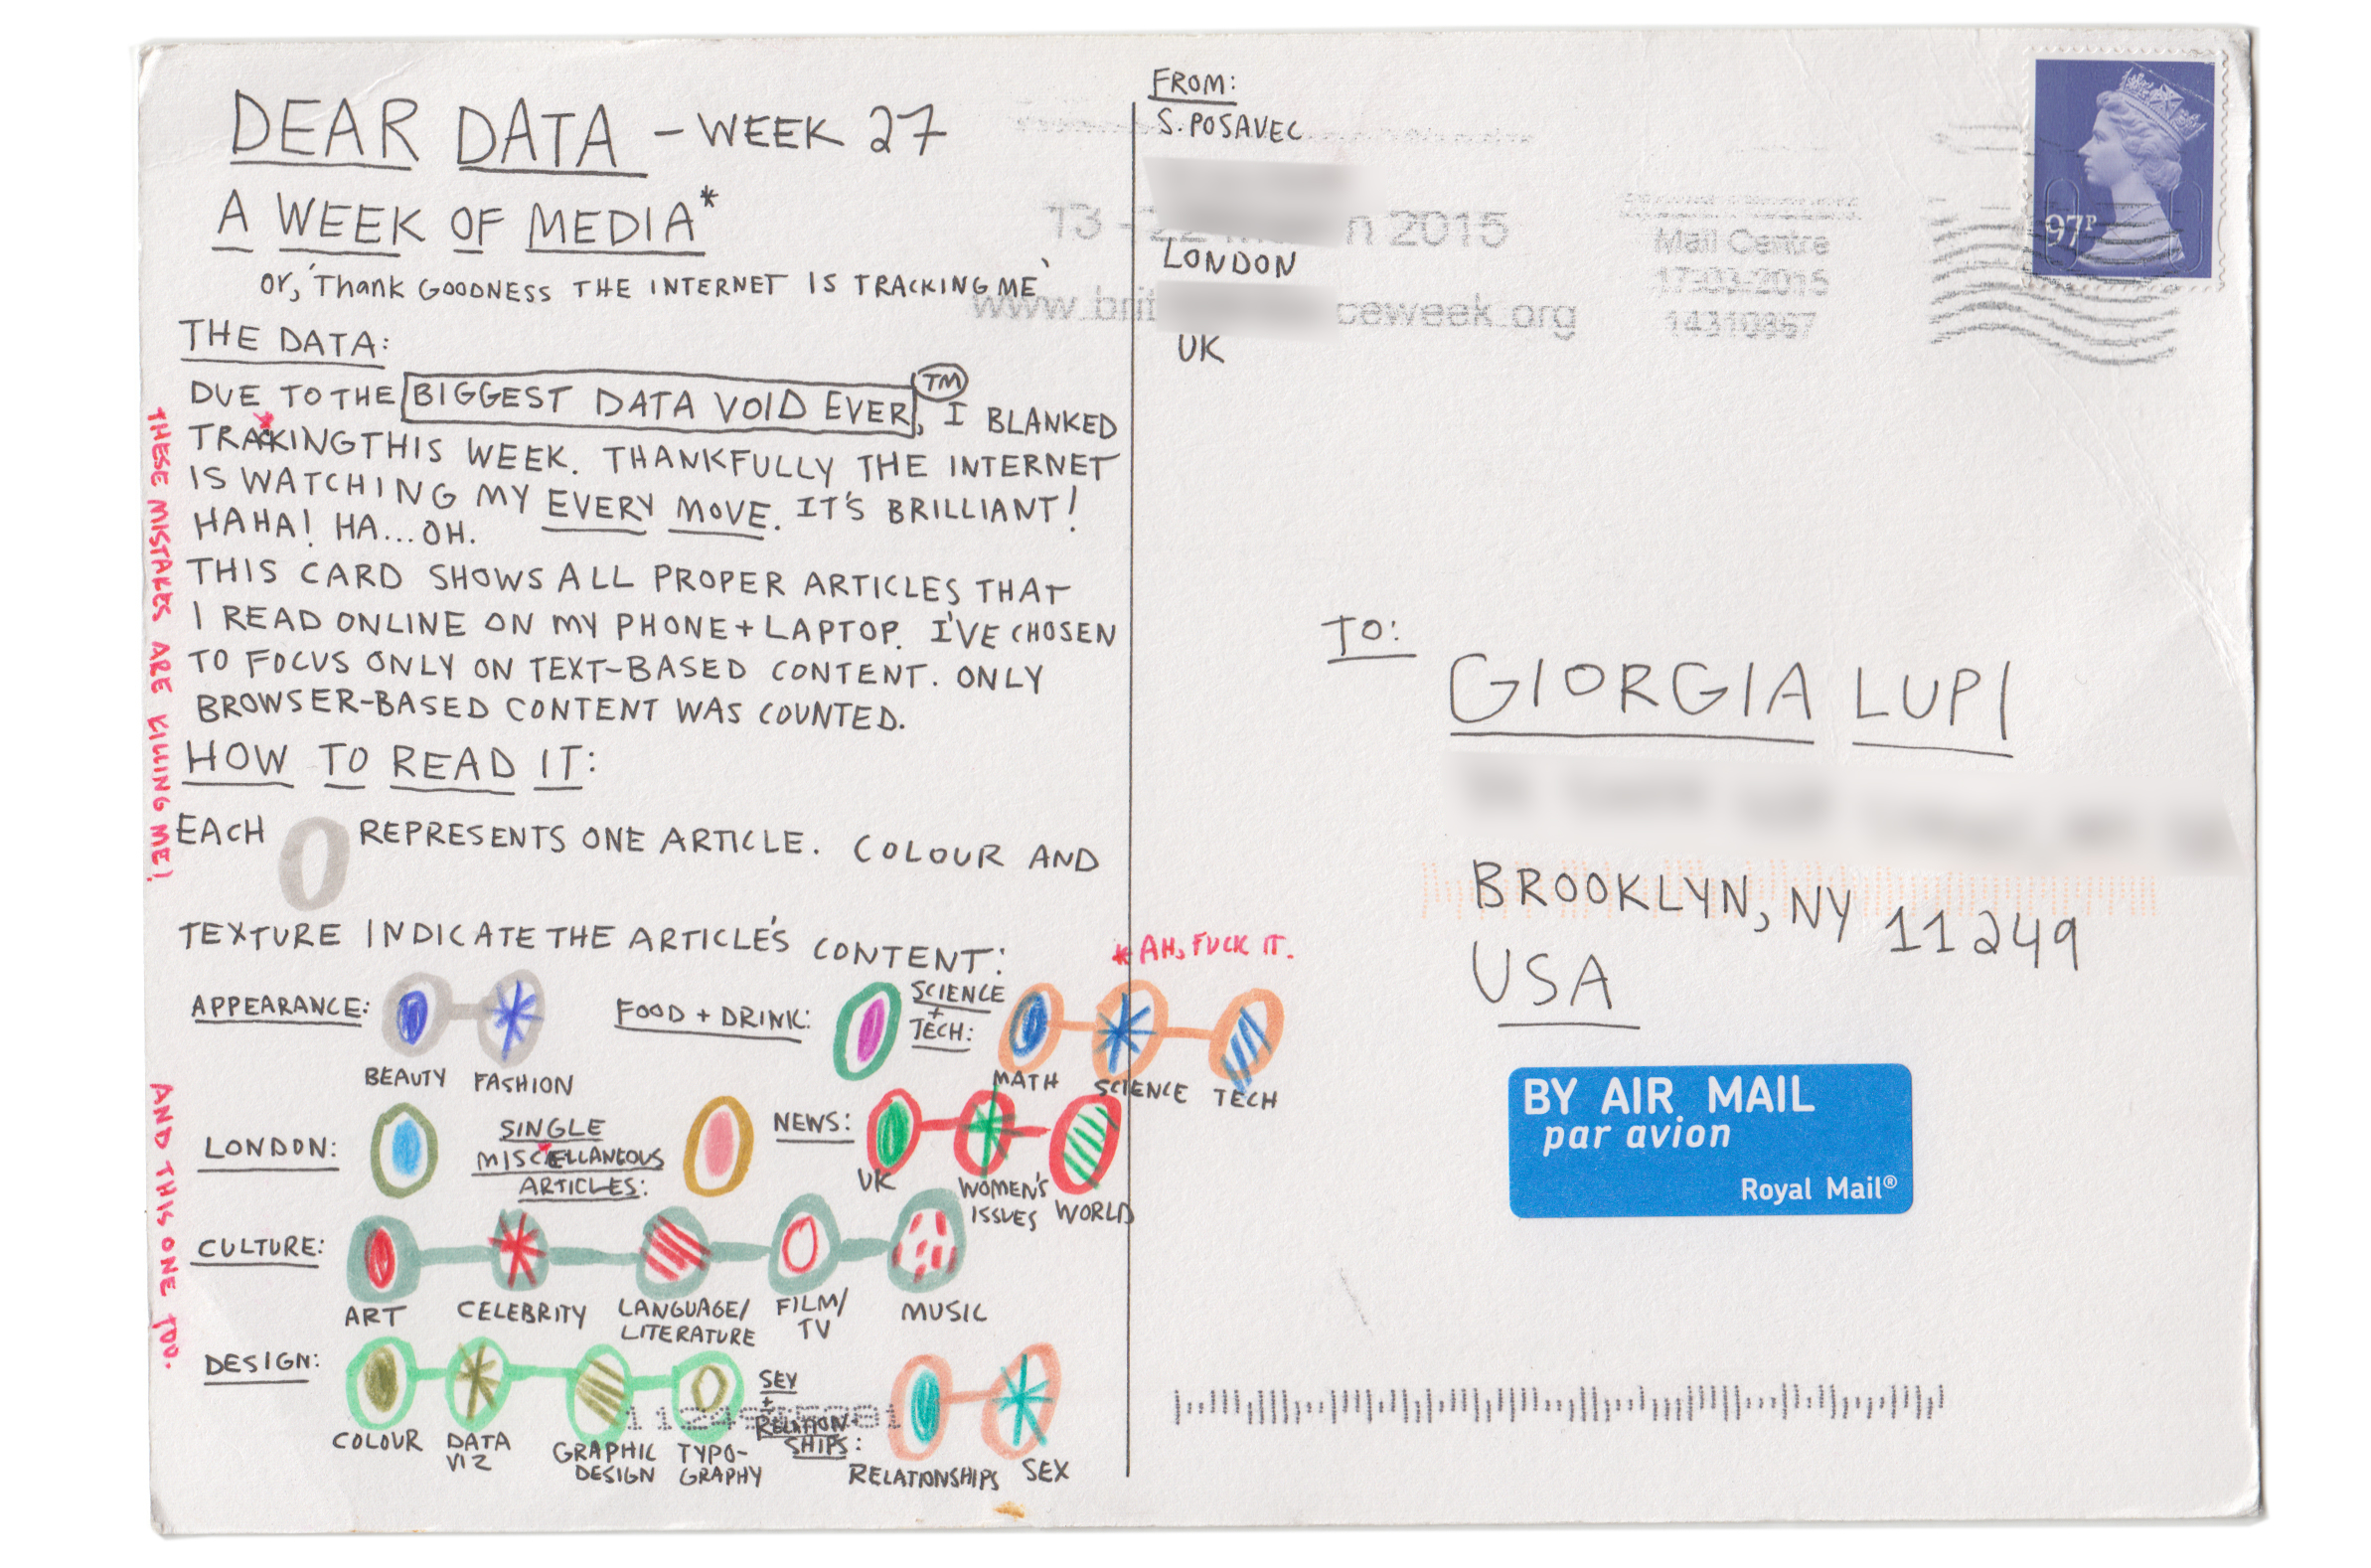 DEAR DATA - WEEK 27
A WEEK OF MEDIA*
or, 'Thank GOODNESS THE INTERNET IS TRACKING ME'
THE DATA:
DUE TO THE BIGGEST DATA VOID EVER, TM I BLANKED
TRACKING THIS WEEK. THANKFULLY THE INTERNET
IS WATCHING MY EVERY MOVE. IT'S BRILLIANT!
HAHA! HA...OH.
THIS CARD SHOWS ALL PROPER ARTICLES THAT
I READ ONLINE ON MY PHONE + LAPTOP. I'VE CHOSEN
TO FOCUS ONLY ON TEXT-BASED CONTENT. ONLY
BROWSER-BASED CONTENT WAS COUNTED.
HOW TO READ IT:
EACH REPRESENTS ONE ARTICLE. COLOUR AND
TEXTURE INDICATE THE ARTICLE'S CONTENT:
* AH, FUCK IT.
APPEARANCE:
BEAUTY FASHION
FOOD + DRINK:
SCIENCE
+
TECH:
MATH SCIENCE TECH
LONDON:
SINGLE
MISCELLANEOUS
ARTICLES:
NEWS:
UK
WOMEN'S
ISSUES
WORLD
CULTURE:
ART
CELEBRITY
LANGUAGE/
LITERATURE
FILM/
TV
MUSIC
DESIGN:
COLOUR
DATA
VIZ
GRAPHIC
DESIGN
TYPO-
GRAPHY
SEX
+
RELATION-
SHIPS:
RELATIONSHIPS
SEX
THESE MISTAKES ARE KILLING ME!
AND THIS ONE TOO.
FROM:
S. POSAVEC
LONDON
UK
13 - 22 2015
www.brit ceweek.org
Mail Centre
17-03-2015
14310857
97P
TO:
GIORGIA LUPI
BROOKLYN, NY 11249
USA
BY AIR MAIL
par avion
Royal Mail®